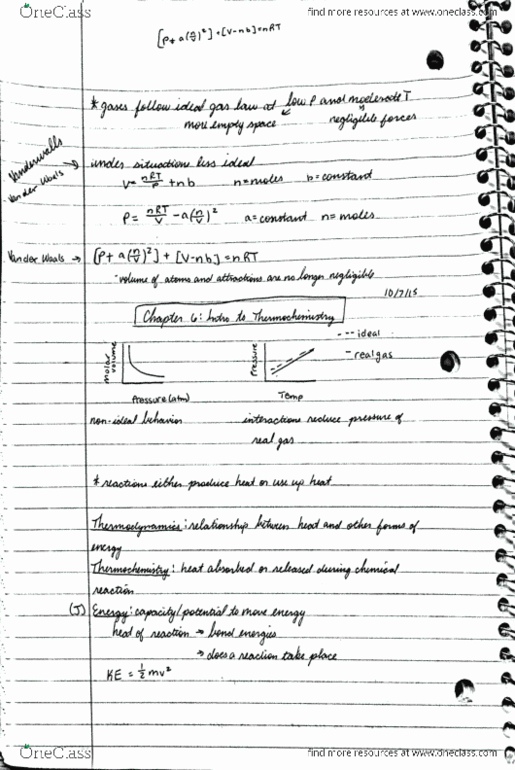 OneClass
find more resources at www.oneclass.com
[P+ a(n/V)²]+[V-nb]=nRT
* gases follow ideal gas law at low P and moderate T
more empty space negligible forces
Vanderwalls
Vander Waals → under situations less ideal
V= nRT/P + nb n=moles b=constant
P= nRT/V - a(n/V)² a=constant n=moles
Vander Waals → [P+ a(n/V)²] + [V-nb]=nRT
-volume of atoms and attractions are no longer negligible
10/7/15
Chapter 6: Intro to Thermochemistry
--- ideal
- real gas
molar volume
Pressure
Pressure (atm)
Temp
non-ideal behavior
interactions reduce pressure of
real gas
* reactions either produce heat or use up heat
Thermodynamics: relationship between heat and other forms of
energy
Thermochemistry: heat absorbed or released during chemical
reaction
(J) Energy: capacity/potential to move energy
heat of reaction → bond energies
→ does a reaction take place
KE = ½mv²
OneClass
find more resources at www.oneclass.com